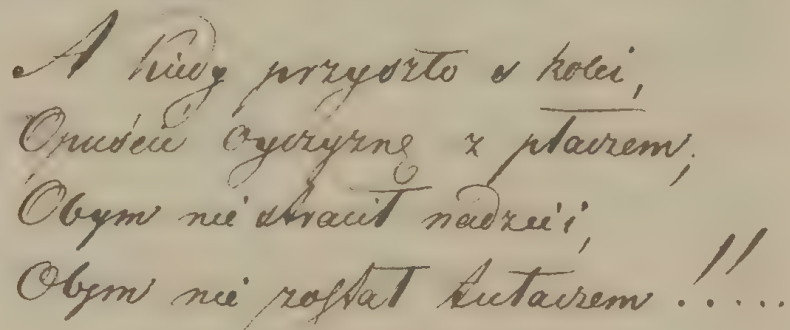 A kiedy przyszło s kolei,
Opuście Oyczyznę z płaczem,
Obym nie stracił nadzieii,
Obym nie zosłał tułaczem !!.....